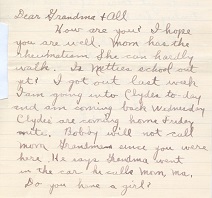 Dear Grandma & All
How are you? I hope
you are well. Mom has the
rheumatism She can hardly
walk. Is Betties school out
yet? I got out last week
I am going into Clydes to-day
and am coming back Wednesday
Clydes are coming home Friday
nite. Bobby will not call
mom Grandma since you were
here He says Grandma went
in the car he calls mom, ma.
Do you have a girl?